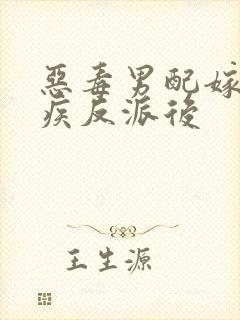 惡毒男配嫁
疾反派後
王生源